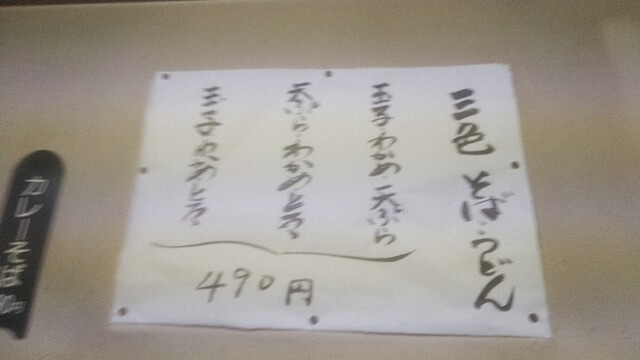 三色 そば・うどん
玉子・わかめ・天ぷら
天ぷら・わかめ・とろろ
玉子・わかめ・とろろ
490円
カレーそば